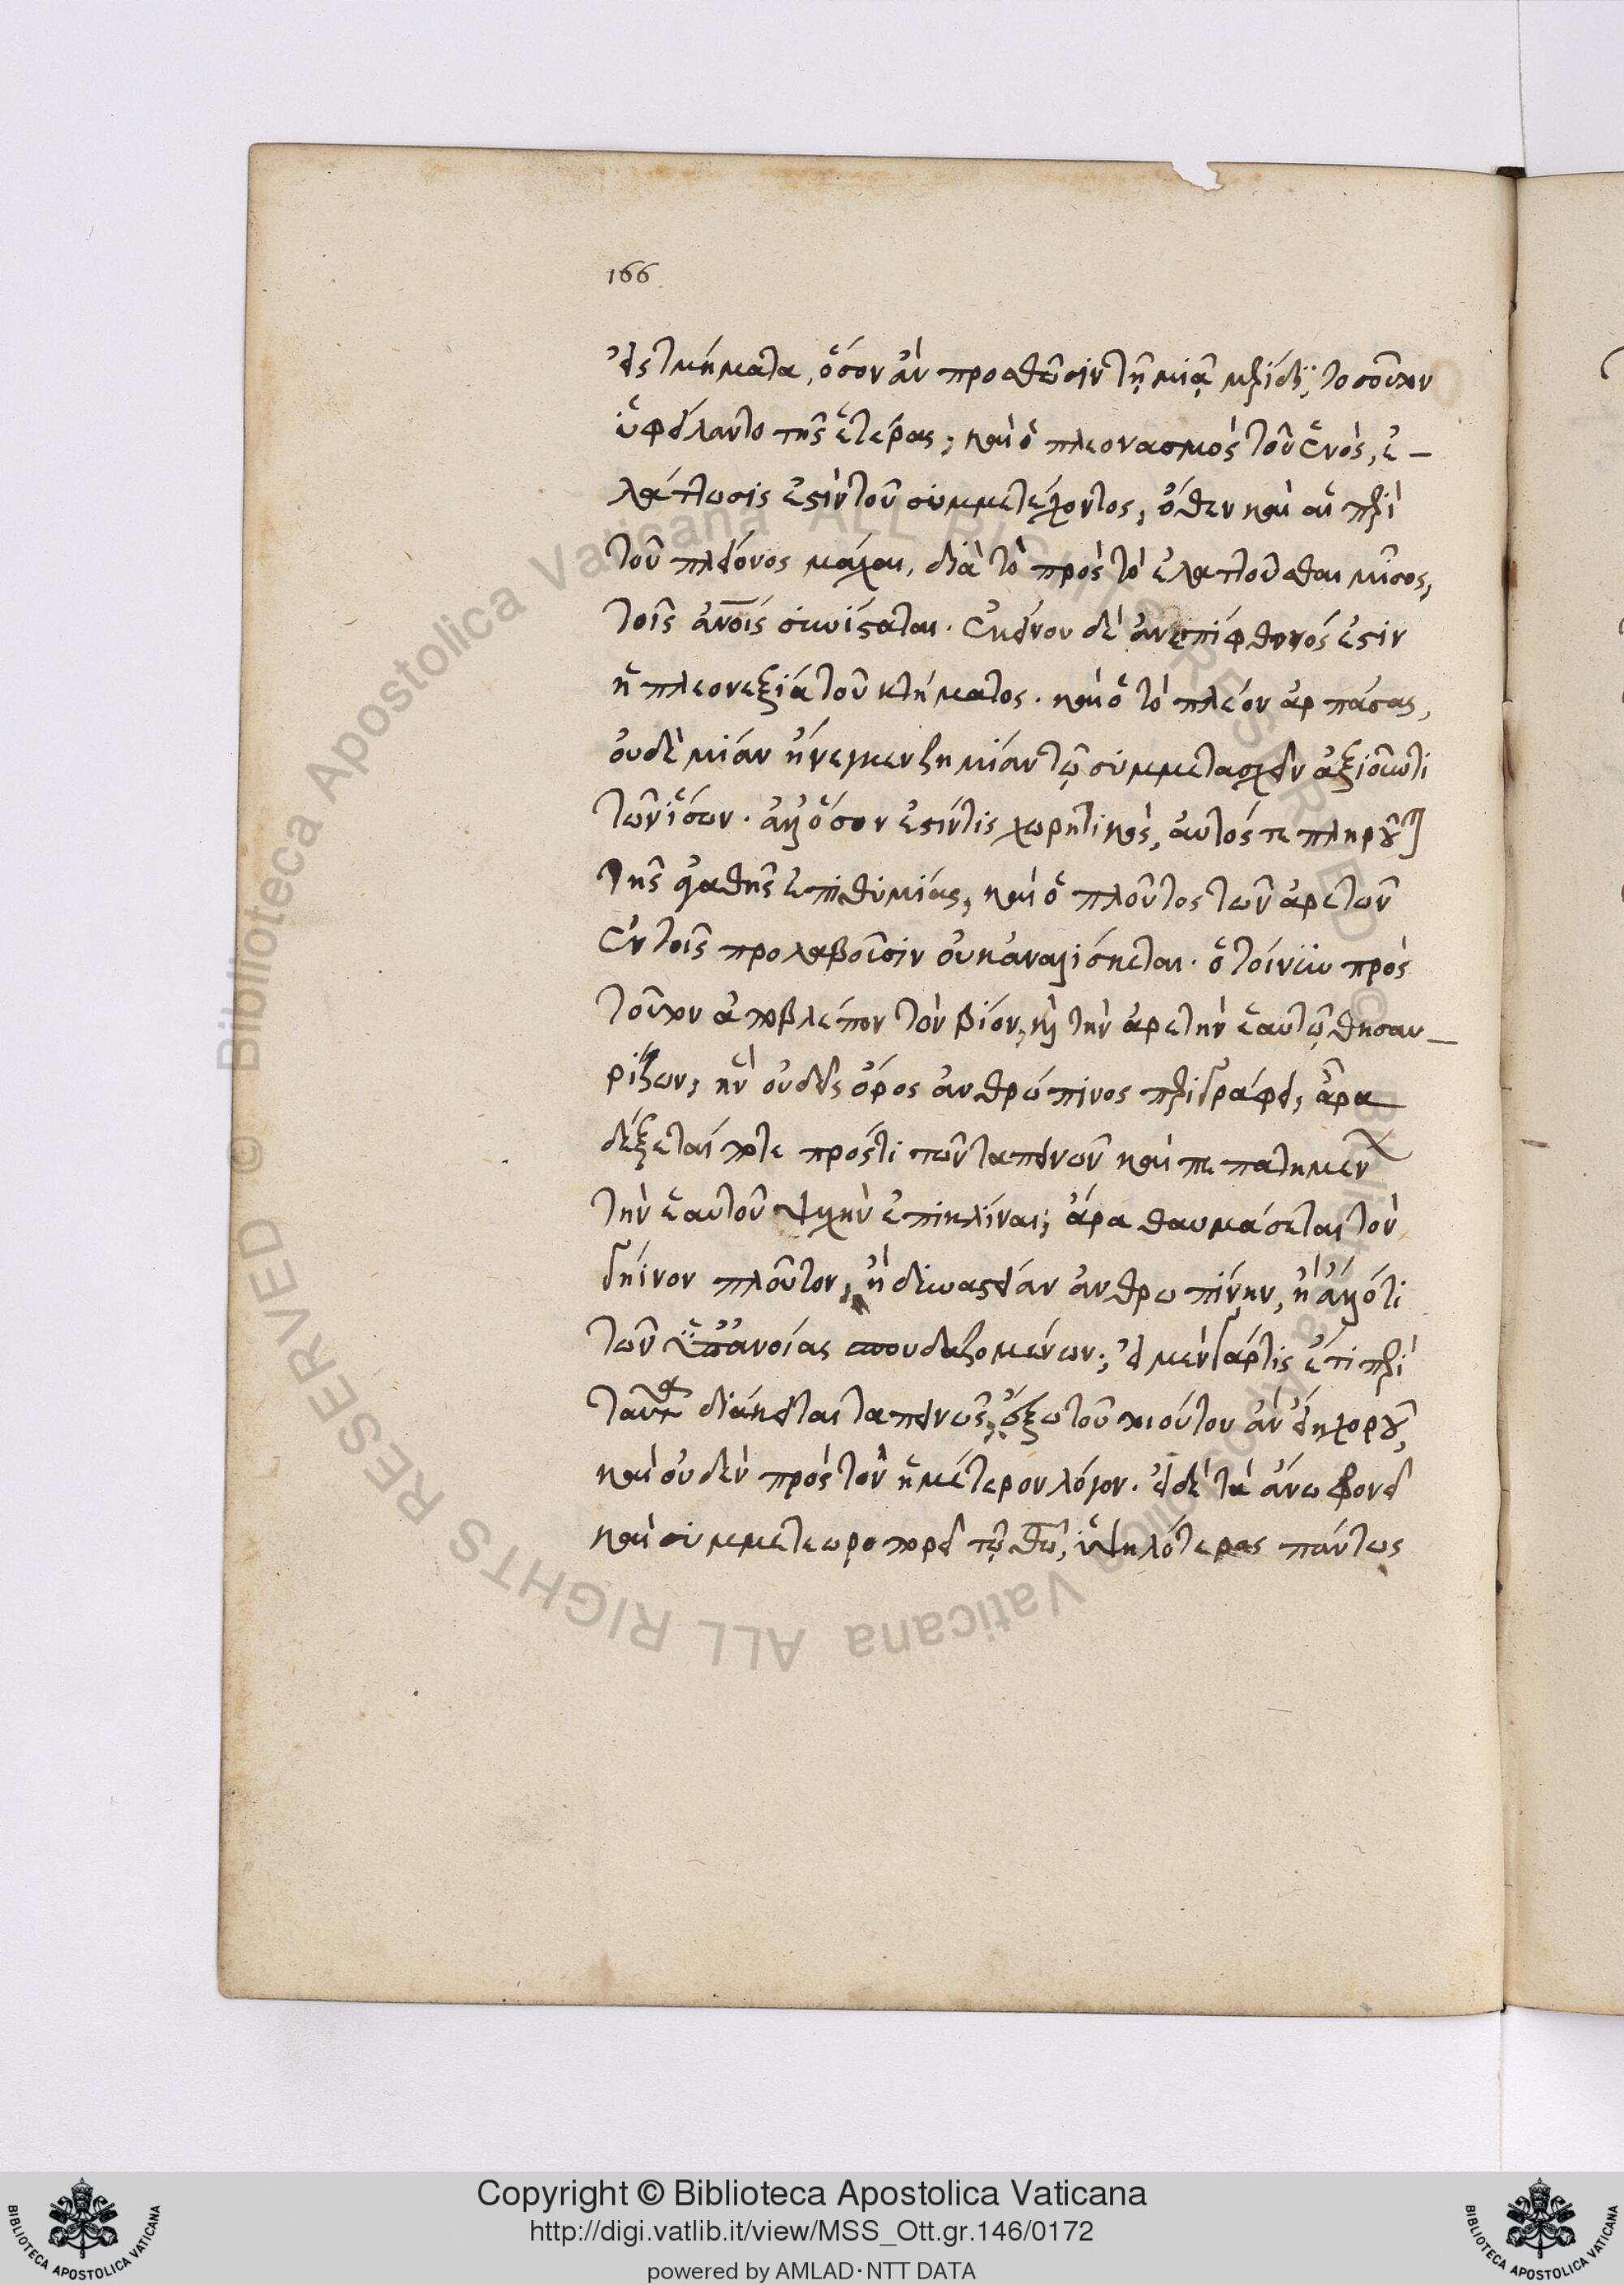 166
εἰς τμήματα, ὅσον ἂν προσθῶσιν τῇ μιᾷ μερίδι, τοσοῦτον
ὑφείλαντο τῆς ἑτέρας, καὶ ὁ πλεονασμὸς τοῦ ἑνὸς, ἐ-
λάττωσις ἐστὶν τοῦ συμμετέχοντος, ὅθεν καὶ αἱ περὶ
τοῦ πλείονος μάχαι, διὰ τὸ πρὸς τὸ ἐλαττοῦσθαι μῖσος,
τοῖς ἀνοῖς συνίσταται. ἐκείνου δὲ ἀνεπίφθονός ἐστιν
ἡ πλεονεξία τοῦ κτήματος. καὶ ὁ τὸ πλέον ἁρπάσας,
οὐδὲμίαν ἤνεγκεν ζημίαν τῷ συμμετασχεῖν ἀξιοῦντι
τῶν ἴσων. ἀλλ' ὅσον ἐστίν τις χωρητικὸς, αὐτός τε πληροῦται
τῆς ἀγαθῆς ἐπιθυμίας, καὶ ὁ πλοῦτος τῶν ἀρετῶν
ἐν τοῖς προλαβοῦσιν οὐκ ἀναλίσκεται. ὁ τοίνυν πρὸς
τοῦτον ἀποβλέπον τὸν βίον, καὶ τὴν ἀρετὴν ἑαυτῷ θησαυ-
ρίζων, ἣν οὐδεὶς ὅρος ἀνθρώπινος περιγράφει, ἆρα
δέξεταί ποτε πρός τι τῶν ταπεινῶν καὶ πεπατημένων
τὴν ἑαυτοῦ ψυχὴν ἐπικλίναι; ἆρα θαυμάσεται τὸν
γήϊνον πλοῦτον, ἢ δυναστείαν ἀνθρωπίνην, ἢ ἄλλό τι
τῶν ὑπ' ἀνοίας σπουδαζομένων; εἰ μὲν γάρ τις ἔτι περὶ
ταῦτα διάκειται ταπεινῶς, ἔξω τοῦ τοιούτου ἂν εἴη χοροῦ,
καὶ οὐδὲν πρὸς τὸν ἡμέτερον λόγον. εἰ δὲ τὰ ἄνω φρονεῖ
καὶ συμμετεωροπορεῖ τῷ θῶ, ὑψηλότερος πάντως
Copyright © Biblioteca Apostolica Vaticana
http://digi.vatlib.it/view/MSS_Ott.gr.146/0172
powered by AMLAD·NTT DATA